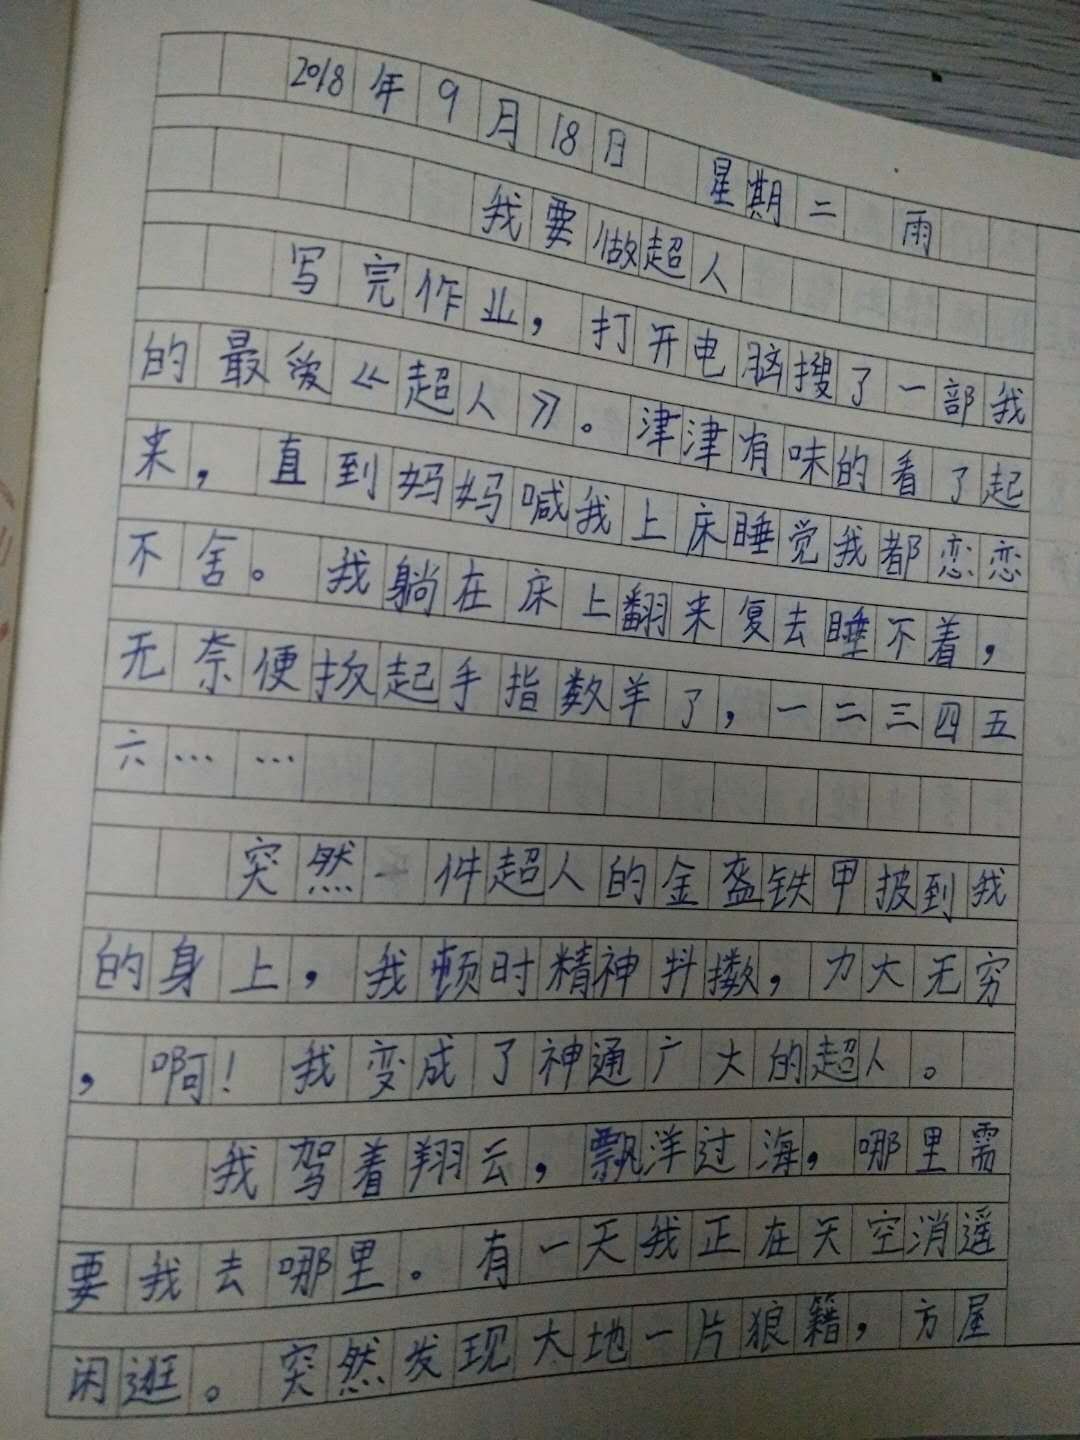 2018年9月18日 星期二 雨
我要做超人
写完作业，打开电脑搜了一部我
的最爱《超人》。津津有味的看了起
来，直到妈妈喊我上床睡觉我都恋恋
不舍。我躺在床上翻来复去睡不着，
无奈便扳起手指数羊了，一二三四五
六……
突然一件超人的金盔铁甲披到我
的身上，我顿时精神抖擞，力大无穷
，啊！我变成了神通广大的超人。
我驾着翔云，飘洋过海，哪里需
要我去哪里。有一天我正在天空消遥
闲逛。突然发现大地一片狼籍，方屋